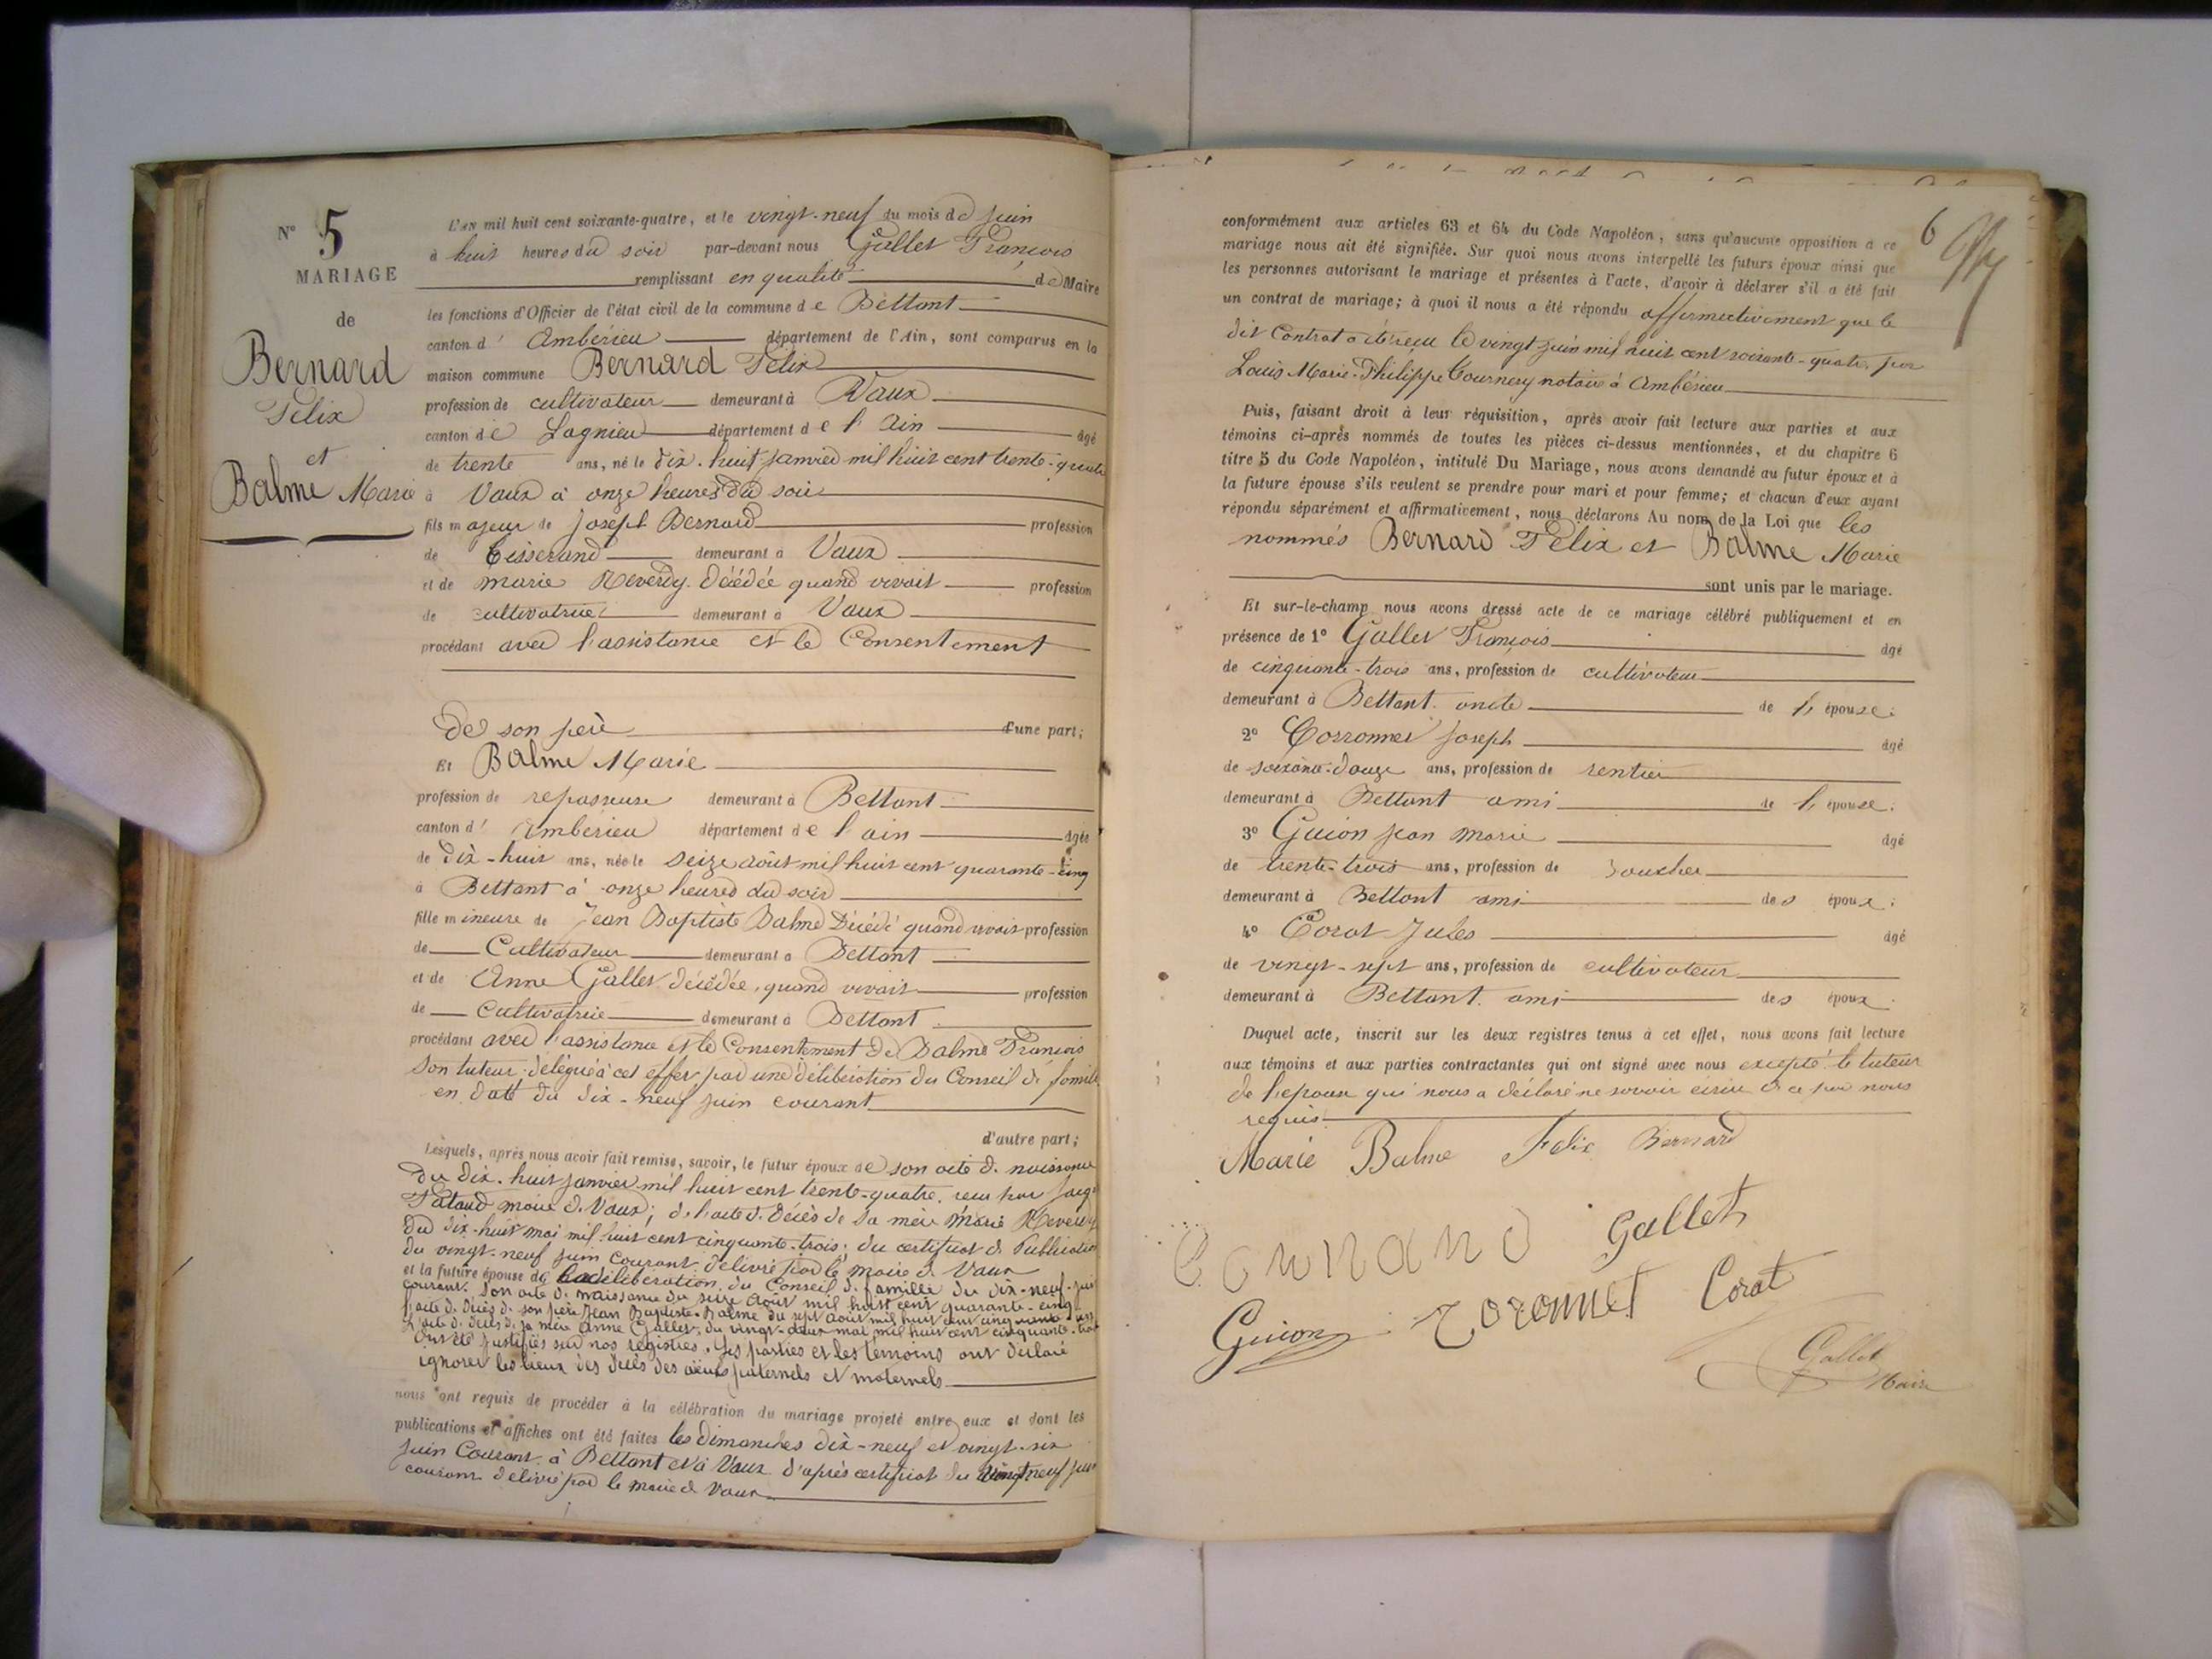 N° 5
MARIAGE
de
Bernard
Félix
et
Balme Marie
L'an mil huit cent soixante-quatre, et le vingt-neuf du mois de juin
à huit heures du soir par-devant nous Gallet François
remplissant en qualité de Maire
les fonctions d'Officier de l'état civil de la commune de Bettant
canton d' Ambérieu département de l'Ain, sont comparus en la
maison commune Bernard Félix
profession de cultivateur demeurant à Vaux
canton de Lagnieu département de l'Ain âgé
de trente ans, né le dix-huit janvier mil huit cent trente-quatre
à Vaux à onze heures du soir
fils majeur de Joseph Bernard profession
de tisserand demeurant à Vaux
et de marie Reverdy décédée quand vivait profession
de cultivatrice demeurant à Vaux
procédant avec l'assistance et le Consentement
de son père d'une part;
Et Balme Marie
profession de repasseuse demeurant à Bettant
canton d' Ambérieu département de l'ain âgée
de dix-huit ans, née le seize août mil huit cent quarante-cinq
à Bettant à onze heures du soir
fille mineure de Jean Baptiste Balme Décédé quand vivait profession
de Cultivateur demeurant à Bettant
et de Anne Gallet décédée, quand vivait profession
de Cultivatrice demeurant à Bettant
procédant avec l'assistance et le Consentement de Balme François
son tuteur délégué à cet effet par une délibération du Conseil de famille
en date du dix-neuf juin courant
d'autre part;
Lesquels, après nous avoir fait remise, savoir, le futur époux de son acte de naissance
du dix-huit janvier mil huit cent trente-quatre, reçu par
Pataud maire de Vaux; de l'acte de décès de sa mère Marie Reverdy
du dix-huit mai mil huit cent cinquante-trois; du certificat de Publication
du vingt-neuf juin Courant délivré par le maire de Vaux
et la future épouse de la délibération du Conseil de famille du dix-neuf juin
courant. son acte de naissance du seize août mil huit cent quarante-cinq
l'acte de décès de son père Jean Baptiste Balme du sept août mil huit cent cinquante
L'acte de décès de sa mère Anne Gallet, du vingt-deux mai mil huit cent cinquante-trois
ont été justifiés sur nos registres. Les parties et les témoins ont déclaré
ignorer les lieux des décès des aïeuls paternels et maternels
nous ont requis de procéder à la célébration du mariage projeté entre eux et dont les
publications et affiches ont été faites les dimanches dix-neuf et vingt-six
juin Courant à Bettant et à Vaux d'après certificat du vingt neuf juin
courant délivré par le maire de Vaux
6
conformément aux articles 63 et 64 du Code Napoléon, sans qu'aucune opposition à ce
mariage nous ait été signifiée. Sur quoi nous avons interpellé les futurs époux ainsi que
les personnes autorisant le mariage et présentes à l'acte, d'avoir à déclarer s'il a été fait
un contrat de mariage; à quoi il nous a été répondu affirmativement que le
dit Contrat a été reçu le vingt juin mil huit cent soixante-quatre, par
Louis Marie Philippe Cournery notaire à Ambérieu
Puis, faisant droit à leur réquisition, après avoir fait lecture aux parties et aux
témoins ci-après nommés de toutes les pièces ci-dessus mentionnées, et du chapitre 6
titre 5 du Code Napoléon, intitulé Du Mariage, nous avons demandé au futur époux et à
la future épouse s'ils veulent se prendre pour mari et pour femme; et chacun d'eux ayant
répondu séparément et affirmativement, nous déclarons Au nom de la Loi que les
nommés Bernard Félix et Balme Marie
sont unis par le mariage.
Et sur-le-champ nous avons dressé acte de ce mariage célébré publiquement et en
présence de 1° Gallet François âgé
de cinquante-trois ans, profession de cultivateur
demeurant à Bettant oncle de l'épouse.
2° Corronnet Joseph âgé
de soixante-douze ans, profession de rentier
demeurant à Bettant ami de l'épouse.
3° Guion jean marie âgé
de trente-trois ans, profession de boucher
demeurant à Bettant ami des époux.
4° Corat Jules âgé
de vingt-sept ans, profession de cultivateur
demeurant à Bettant ami des époux.
Duquel acte, inscrit sur les deux registres tenus à cet effet, nous avons fait lecture
aux témoins et aux parties contractantes qui ont signé avec nous excepté le tuteur
de l'epouse qui nous a déclaré ne savoir écrire de ce par nous
requis
Marie Balme Felix Bernard
Gallet
Guion Coronnet Corat
Gallet
Maire